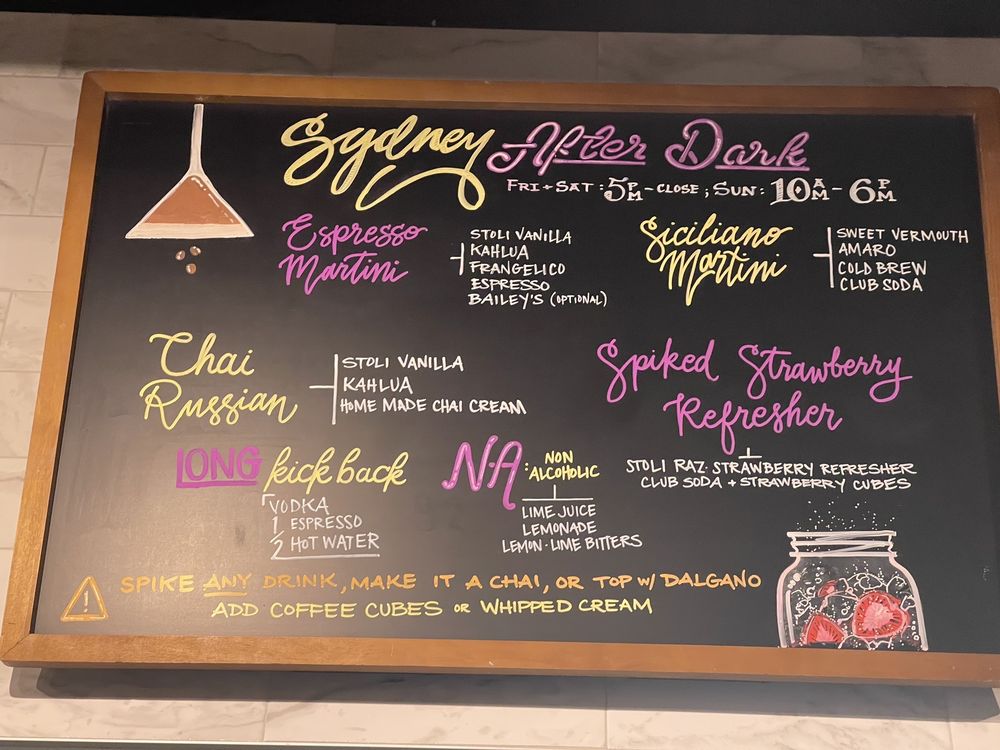 Sydney After Dark
FRI + SAT : 5PM - CLOSE ; SUN : 10AM - 6PM
Espresso
Martini
STOLI VANILLA
KAHLUA
FRANGELICO
ESPRESSO
BAILEY'S (OPTIONAL)
Siciliano
Martini
SWEET VERMOUTH
AMARO
COLD BREW
CLUB SODA
Chai
Russian
STOLI VANILLA
KAHLUA
HOME MADE CHAI CREAM
Spiked Strawberry
Refresher
STOLI RAZ · STRAWBERRY REFRESHER
CLUB SODA + STRAWBERRY CUBES
LONG kick back
VODKA
1 ESPRESSO
2 HOT WATER
N·A : NON
ALCOHOLIC
LIME JUICE
LEMONADE
LEMON · LIME BITTERS
! SPIKE ANY DRINK, MAKE IT A CHAI, OR TOP W/ DALGANO
ADD COFFEE CUBES OR WHIPPED CREAM